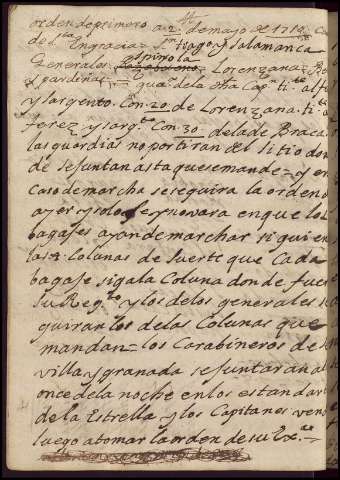 orden de primero a 2 de mayo de 1710
de Sta Engracia = Santiago y Salamanca
Generales Espinola Lorenzana = 
y gardinas = guaa dela otra Capn tite alfe
y sargento. Con 20 de Lorenzana. tite
ferez y sargto Con 30 dela de Braca
las guardias no partiran del sitio don
de se juntan asta que se mande = y en
Caso de marcha se seguira la orden de
ayer y solo se renovara en que los
bagajes ayan de marchar siguien
las 2 Colunas de suerte que Cada
bagaje siga la Coluna donde fuer
su Regto y los delos generales se
guiran los delas Colunas que
mandan = los Carabineros de se
villa y granada se juntaran al
once dela noche en los estandar
de la Estrella = y los Capitanes vend
luego a tomar la orden de su Exa =